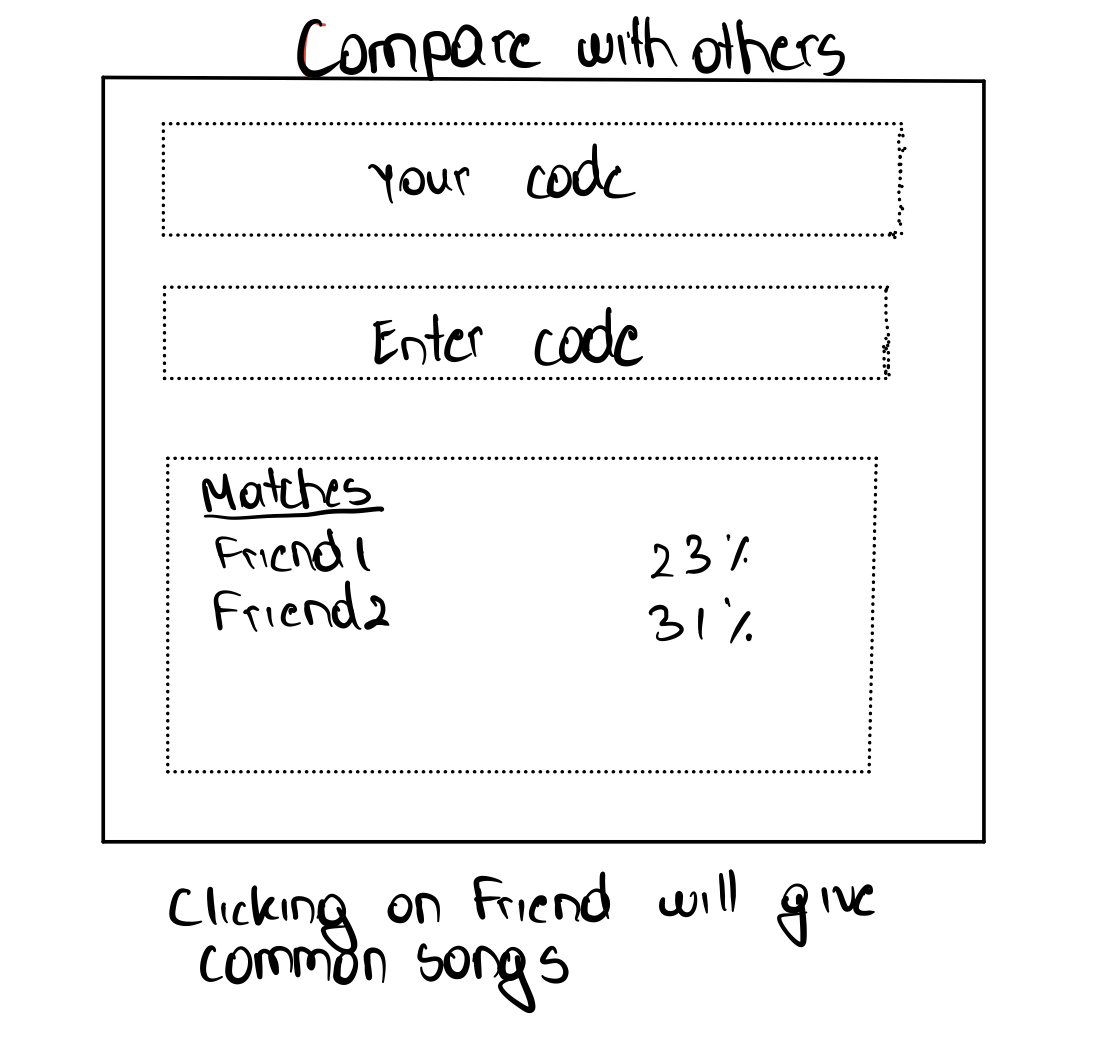 Compare with others
Your code
Enter code
Matches
Friend1 23%
Friend2 31%
Clicking on Friend will give
common songs